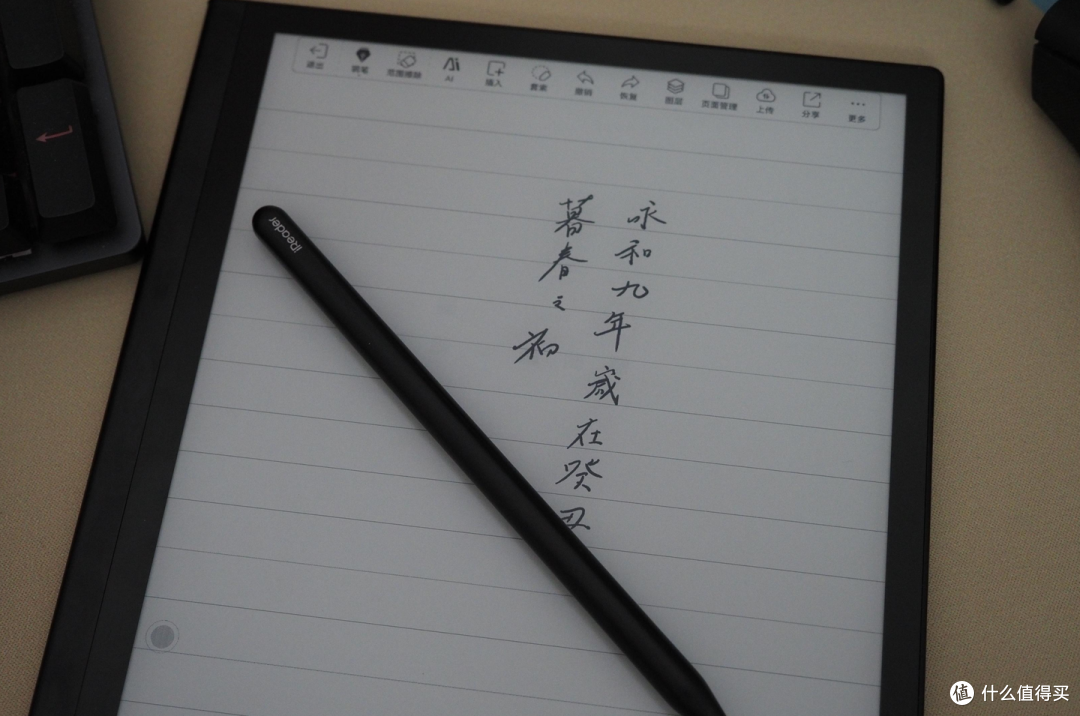 退出 钢笔 范围擦除 AI 插入 套索 撤销 恢复 图层 页面管理 上传 分享 更多
咏和九年歳在癸丑
暮春之初
iReader
值 什么值得买